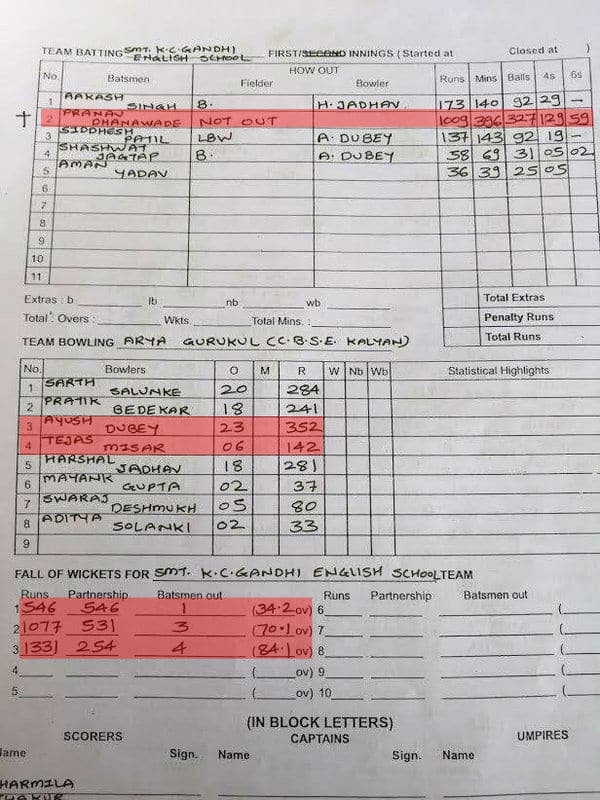 TEAM BATTING SMT. K.C. GANDHI ENGLISH SCHOOL FIRST/SECOND INNINGS ( Started at Closed at )
No. Batsmen HOW OUT Fielder Bowler Runs Mins Balls 4s 6s
1 AAKASH SINGH B. H. JADHAV 173 140 92 29 –
† 2 PRANAV DHANAWADE NOT OUT 1009 396 327 129 59
3 SIDDHESH PATIL LBW A. DUBEY 137 143 92 19 –
4 SHASHWAT JAGTAP B. A. DUBEY 58 69 31 05 02
5 AMAN YADAV 36 39 25 05
6
7
8
9
10
11
Extras : b lb nb wb Total Extras
Penalty Runs
Total : Overs : Wkts. Total Mins. : Total Runs
TEAM BOWLING ARYA GURUKUL (C.B.S.E. KALYAN)
No. Bowlers O M R W Nb Wb Statistical Highlights
1 SARTH SALUNKE 20 284
2 PRATIK BEDEKAR 18 241
3 AYUSH DUBEY 23 352
4 TEJAS MISAR 06 142
5 HARSHAL JADHAV 18 281
6 MAYANK GUPTA 02 37
7 SWARAJ DESHMUKH 05 80
8 ADITYA SOLANKI 02 33
9
FALL OF WICKETS FOR SMT. K.C. GANDHI ENGLISH SCHOOL TEAM
Runs Partnership Batsmen out Runs Partnership Batsmen out
1 546 546 1 (34.2 ov) 6 (
2 1077 531 3 (70.1 ov) 7 (
3 1331 254 4 (84.1 ov) 8 (
4 ( ov) 9 (
5 ( ov) 10 (
(IN BLOCK LETTERS)
SCORERS CAPTAINS UMPIRES
Name Sign. Name Sign. Name
HARMILA